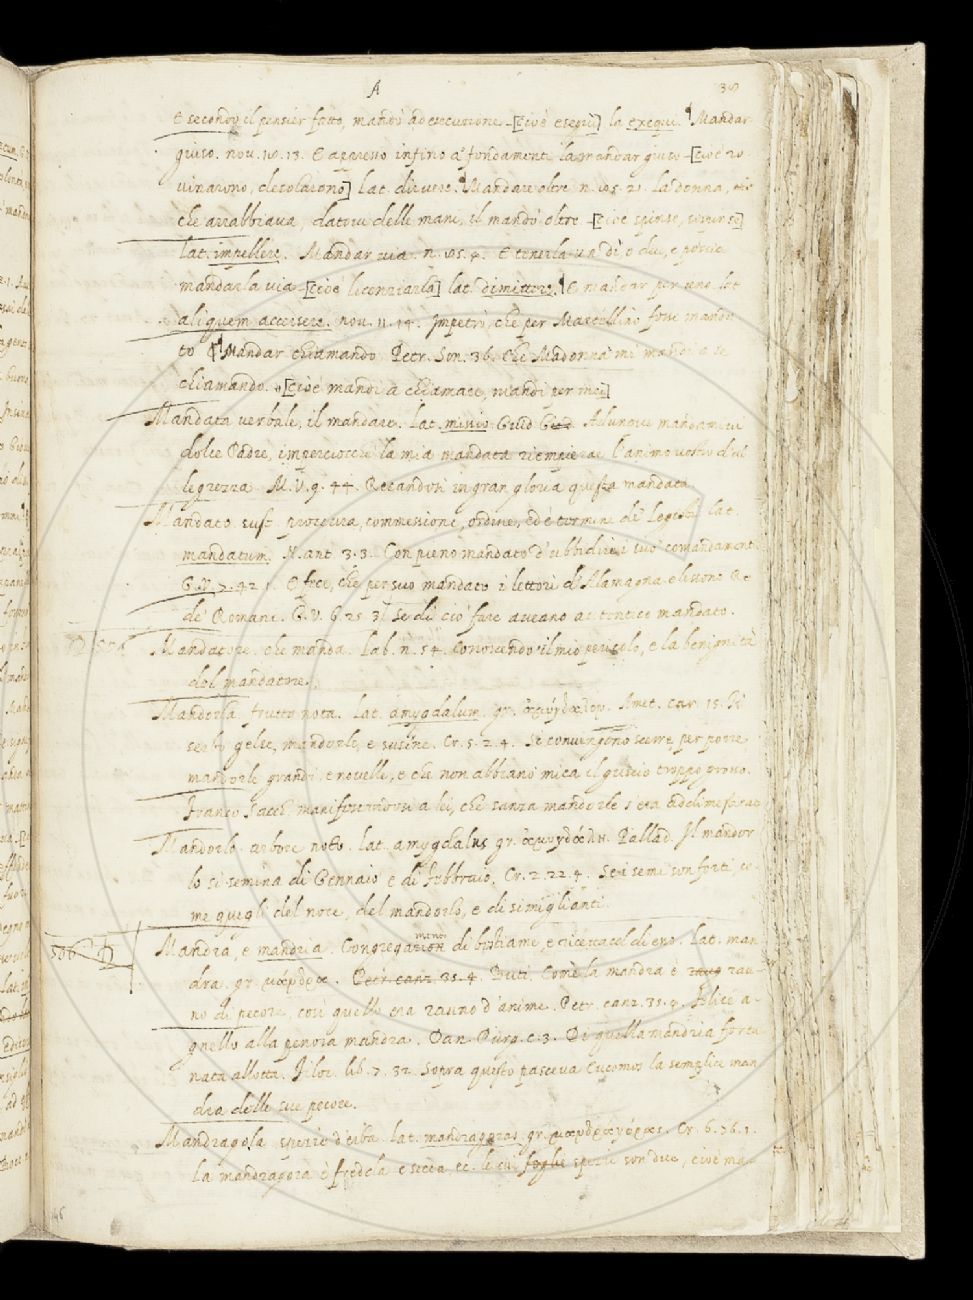 A
E secondo il pensier fatto, mandò ad esecuzione [cioè eseguì] la exequi. Mandar
giuso. nov. 10. 13. E appresso infino a' fondamenti la mandar giuso [cioè ro-
vinarono, desolarono] lat. diruere. Mandare oltre n. 105. 21. La donna,
che arrabbiava, datovi delle mani, il mandò oltre [cioè spinse,
lat. impellere. Mandar via. n. 105. 4. E tenerla un dì, o due, e poscia
mandarla via [cioè licenziarla] lat. dimittere. E mandar per uno lat
aliquem accersere. nov. 11. 14. Impetrò, che per Martellino fosse manda
to Mandar chiamando. Petr. Son. 36. Che Madonna mi mandi a se
chiamando. [cioè mandi a chiamare, mandi per me]
Mandata verbale, il mandare. Lat. missio Guid Adunque mandami
dolce Padre, imperciocchè la mia mandata riempierae l'animo vostro d'al
legrezza. M. V. 9. 44. Recandosi in gran gloria questa mandata
Mandato sust. procura, commessione, ordine, ed è termine de' Legisti lat.
mandatum. N. ant 3. 3. Con pieno mandato d'ubbidire i suo' comandamenti
G. V. 7. 42 1. E fece, che per suo mandato i lettori d'Alamagna elessono Re
de' Romani. G. V. 6. 25. 3. Se di ciò fare aveano autentico mandato.
Mandatore. che manda. Lab. n. 54. Conoscendo il mio pericolo, e la benignità
del mandatore.
Mandorla frutto nota. Lat. amygdalum gr. ἀμύγδαλον. Amet. car. 15.
gelse, mandorle, e susine. Cr. 5. 2. 4. Si convengono scerre per porre
mandorle grandi, e novelle, e che non abbiano mica il guscio troppo grosso.
Franco Sacch manifestandosi a lei, che sanza mandorle s'era
Mandorlo arbore noto. lat. amygdalus gr. ἀμυγδάλη. Pallad. Il mandor
lo si semina di Gennaio e di Febbraio. Cr. 2. 22. 4. Se i semi son forti, co
me quegli del noce, del mandorlo, e di simiglianti.
506 D
Mandra, e mandria. Congregamento di bestiame, e ricettacol di ero. Lat. man
dra. gr. μάνδρα. Petr. canz. 35. 4. Buti. Come la mandra è raug rau-
no di pecore, così quello era rauno d'anime. Petr. canz. 35. 4. Felice a-
gnello alla penosa mandra. Dan. Purg. c. 3. Di quella mandria fortu
nata allotta. Filoc. lib. 7. 32. Sopra questo pasceva Eucomos la semplice man
dra delle sue pecore.
Mandragola spezie d'erba. lat. mandragoras gr. μανδραγόρας. Cr. 6. 76. 1.
La mandragora è fredda e secca, ec. le cui foglie spezie son due, cioè ma-